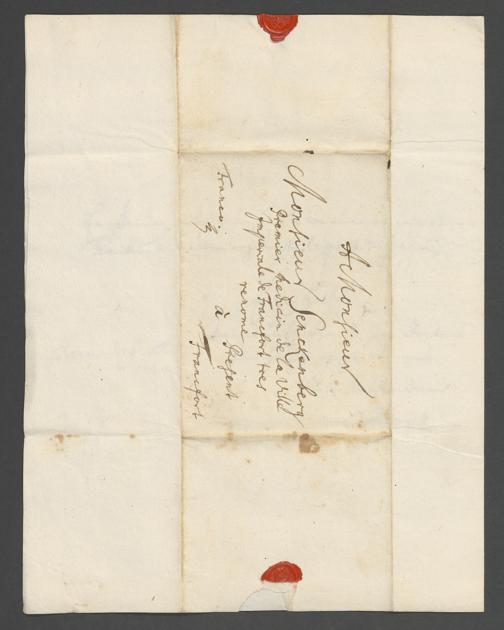 A Monsieur
Monsieur Senckenberg
Premier Medicin de la Ville
Imperiale de Francfort tres
renomé
à Present
Francfort
Franco